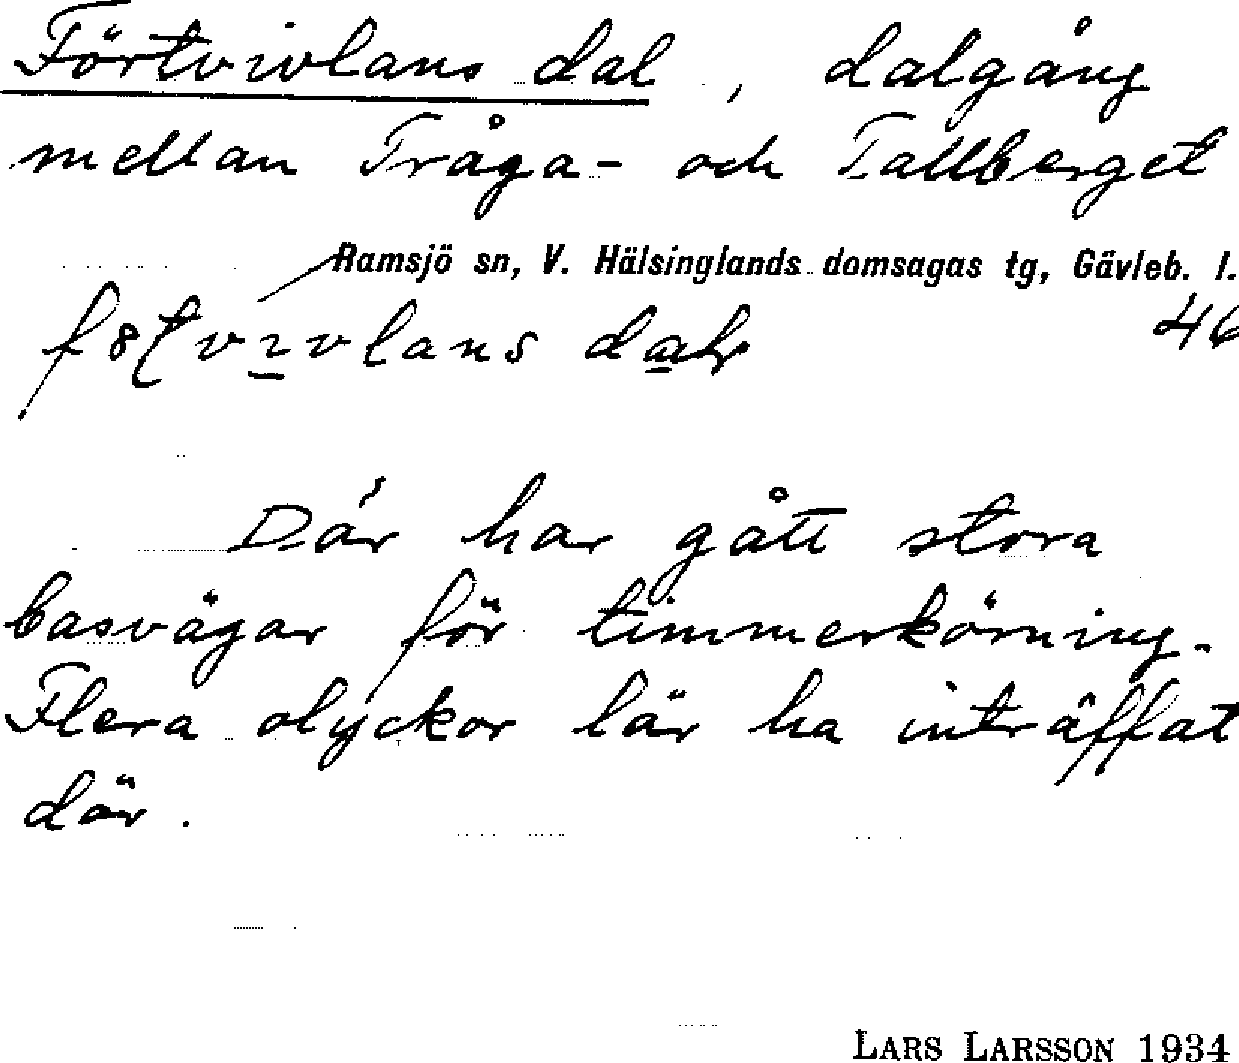 Förtvivlans dal, dalgång
mellan Tråga- och Tallberget
Ramsjö sn, V. Hälsinglands domsagas tg, Gävleb. l.
46
Där har gått stora
basvägar för timmerkörning.
Flera olyckor lär ha inträffat
där.
LARS LARSSON 1934